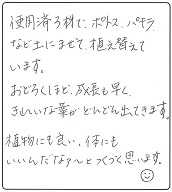 使用済み材で、ポトス、パキラ
など土にまぜて、植え替えて
います。
おどろくほど、成長も早く、
きれいな葉がどんどん出てきます。
植物にも良い、体にも
いいんだなぁ〜とつくづく思います。